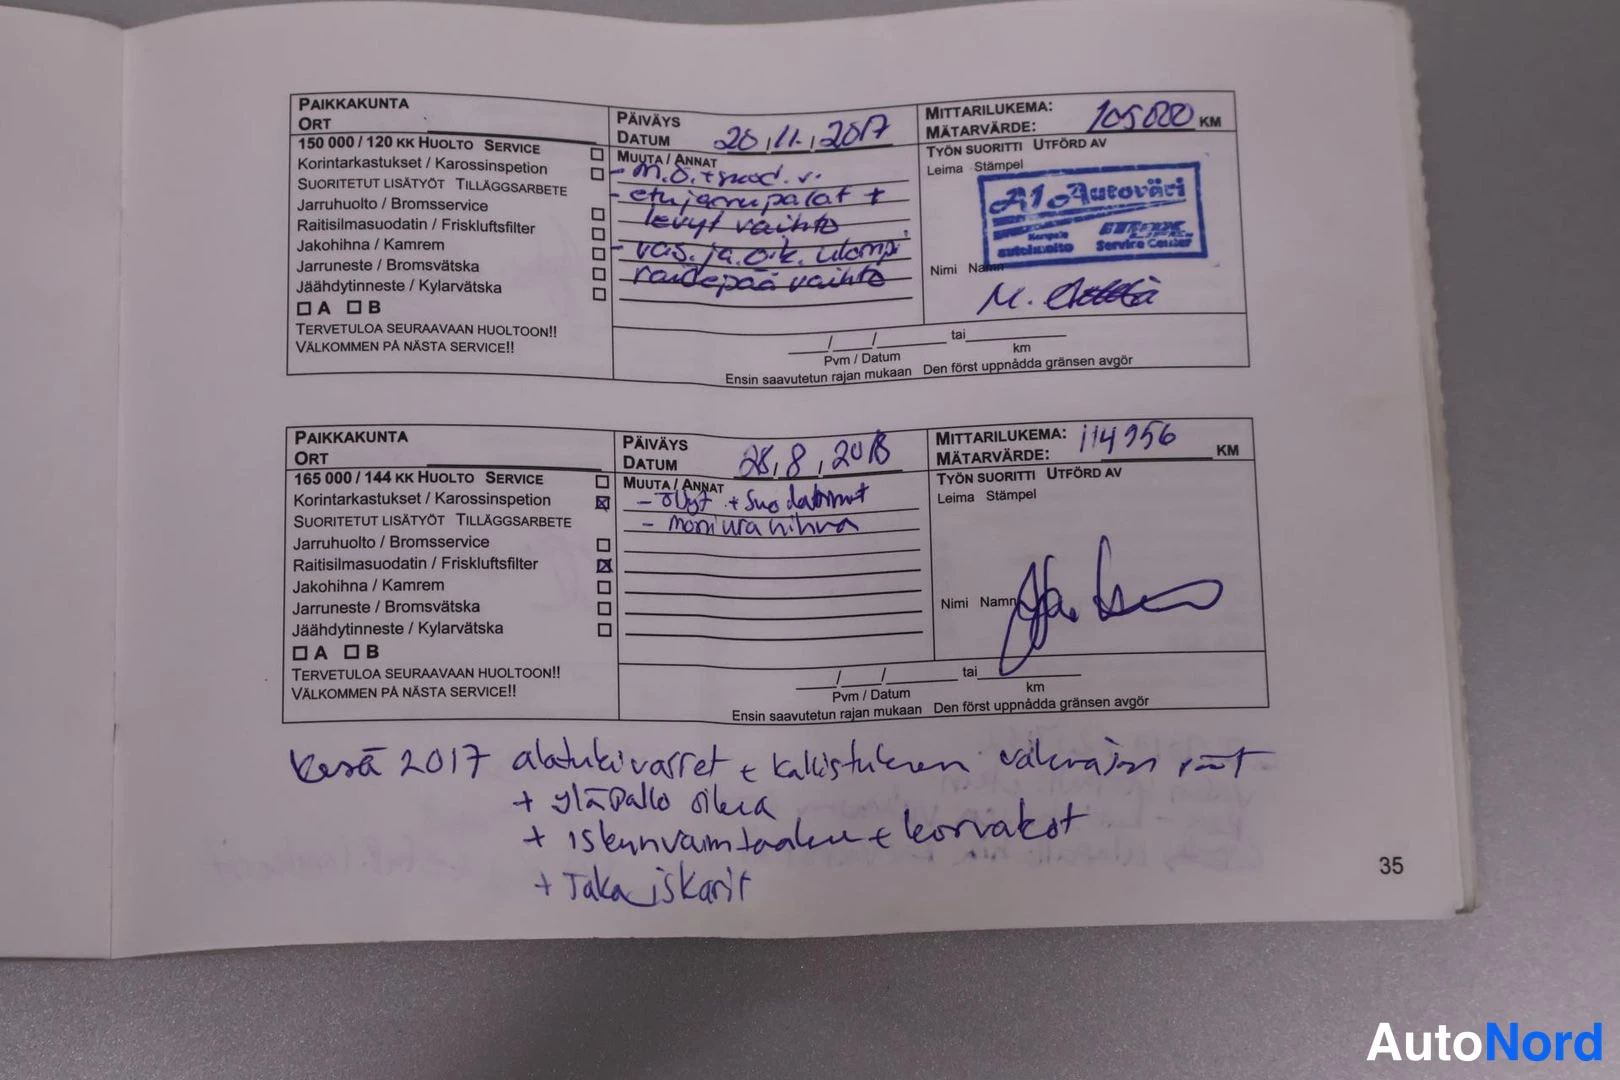 PAIKKAKUNTA
ORT
150 000 / 120 KK HUOLTO SERVICE
Korintarkastukset / Karossinspetion
SUORITETUT LISÄTYÖT TILLÄGGSARBETE
Jarruhuolto / Bromsservice
Raitisilmasuodatin / Friskluftsfilter
Jakohihna / Kamrem
Jarruneste / Bromsvätska
Jäähdytinneste / Kylarvätska
A B
TERVETULOA SEURAAVAAN HUOLTOON!!
VÄLKOMMEN PÅ NÄSTA SERVICE!!
PÄIVÄYS
DATUM 20,11.,2017
MUUTA / ANNAT
- M.Ö. + suod. v.
- etujarrupalat +
levyt vaihto
- vas. ja. oik. ulompi
raidepää vaihto
MITTARILUKEMA:
MÄTARVÄRDE: 105000 KM
TYÖN SUORITTI UTFÖRD AV
Leima Stämpel
A1 Autoväri
Kempele
autohuolto
Service Center
Nimi Namn
M.
/ / tai
Pvm / Datum km
Ensin saavutetun rajan mukaan Den först uppnådda gränsen avgör
PAIKKAKUNTA
ORT
165 000 / 144 KK HUOLTO SERVICE
Korintarkastukset / Karossinspetion
SUORITETUT LISÄTYÖT TILLÄGGSARBETE
Jarruhuolto / Bromsservice
Raitisilmasuodatin / Friskluftsfilter
Jakohihna / Kamrem
Jarruneste / Bromsvätska
Jäähdytinneste / Kylarvätska
A B
TERVETULOA SEURAAVAAN HUOLTOON!!
VÄLKOMMEN PÅ NÄSTA SERVICE!!
PÄIVÄYS
DATUM 28,8,2018
MUUTA / ANNAT
- öljyt + suodattimet
- moniurahihna
MITTARILUKEMA: 114956
MÄTARVÄRDE: KM
TYÖN SUORITTI UTFÖRD AV
Leima Stämpel
Nimi Namn
/ / tai
Pvm / Datum km
Ensin saavutetun rajan mukaan Den först uppnådda gränsen avgör
Kesä 2017 alatukivarret + kallistuksen vakaajan
+ yläpallo oikea
+ iskunvaimtaaken + korvakot
+ Taka iskarit
35
AutoNord